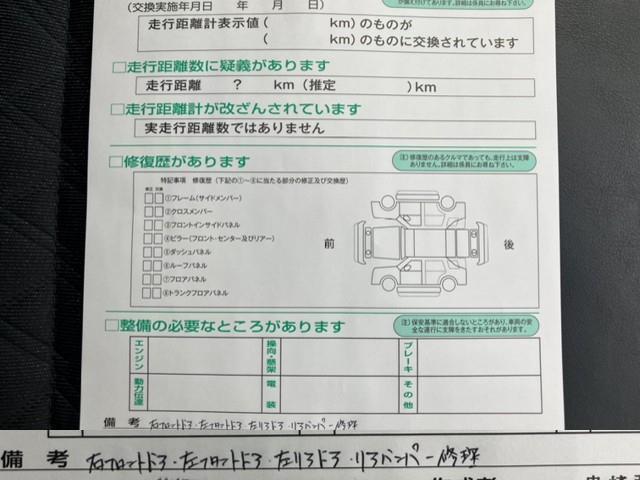 (交換実施年月日　年　月　日)
走行距離計表示値(　　　km)のものが
(　　　km)のものに交換されています
□走行距離数に疑義があります
走行距離　?　km(推定　　　)km
□走行距離計が改ざんされています
実走行距離数ではありません
□修復歴があります
注)修復歴のあるクルマであっても、走行上は支障ありません。詳細は係員にお尋ねください。
特記事項　修復歴(下記の①〜⑧に当たる部分の修正及び交換歴)
修正 交換
□□①フレーム(サイドメンバー)
□□②クロスメンバー
□□③フロントインサイドパネル
□□④ピラー(フロント・センター及びリアー)
□□⑤ダッシュパネル
□□⑥ルーフパネル
□□⑦フロアパネル
□□⑧トランクフロアパネル
前　後
□整備の必要なところがあります
注)保安基準に適合しないところがあり、車両の安全な運行に支障をきたすおそれがあります。
エンジン　操向・懸架　ブレーキ
動力伝達　電装　その他
備考 右フロントドア・左フロントドア・左リアドア・リアバンパー修理
備考 右フロントドア・左フロントドア・左リアドア・リアバンパー修理